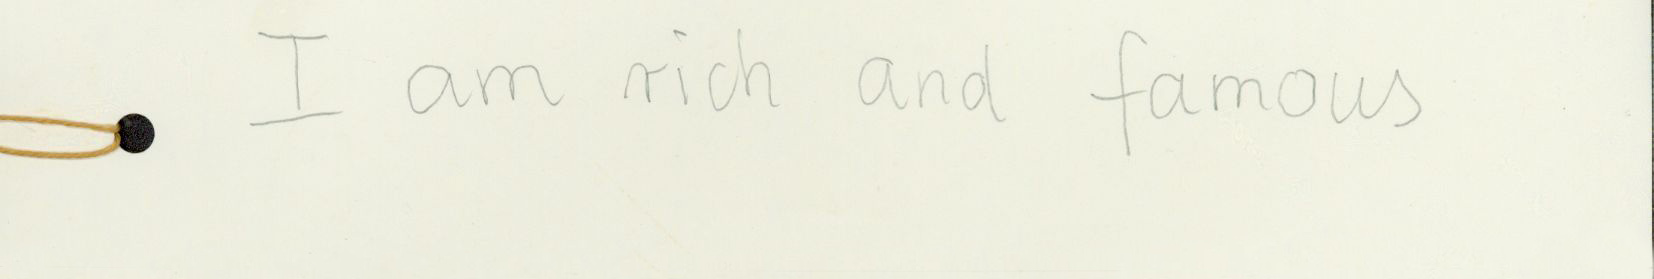 I am rich and famous